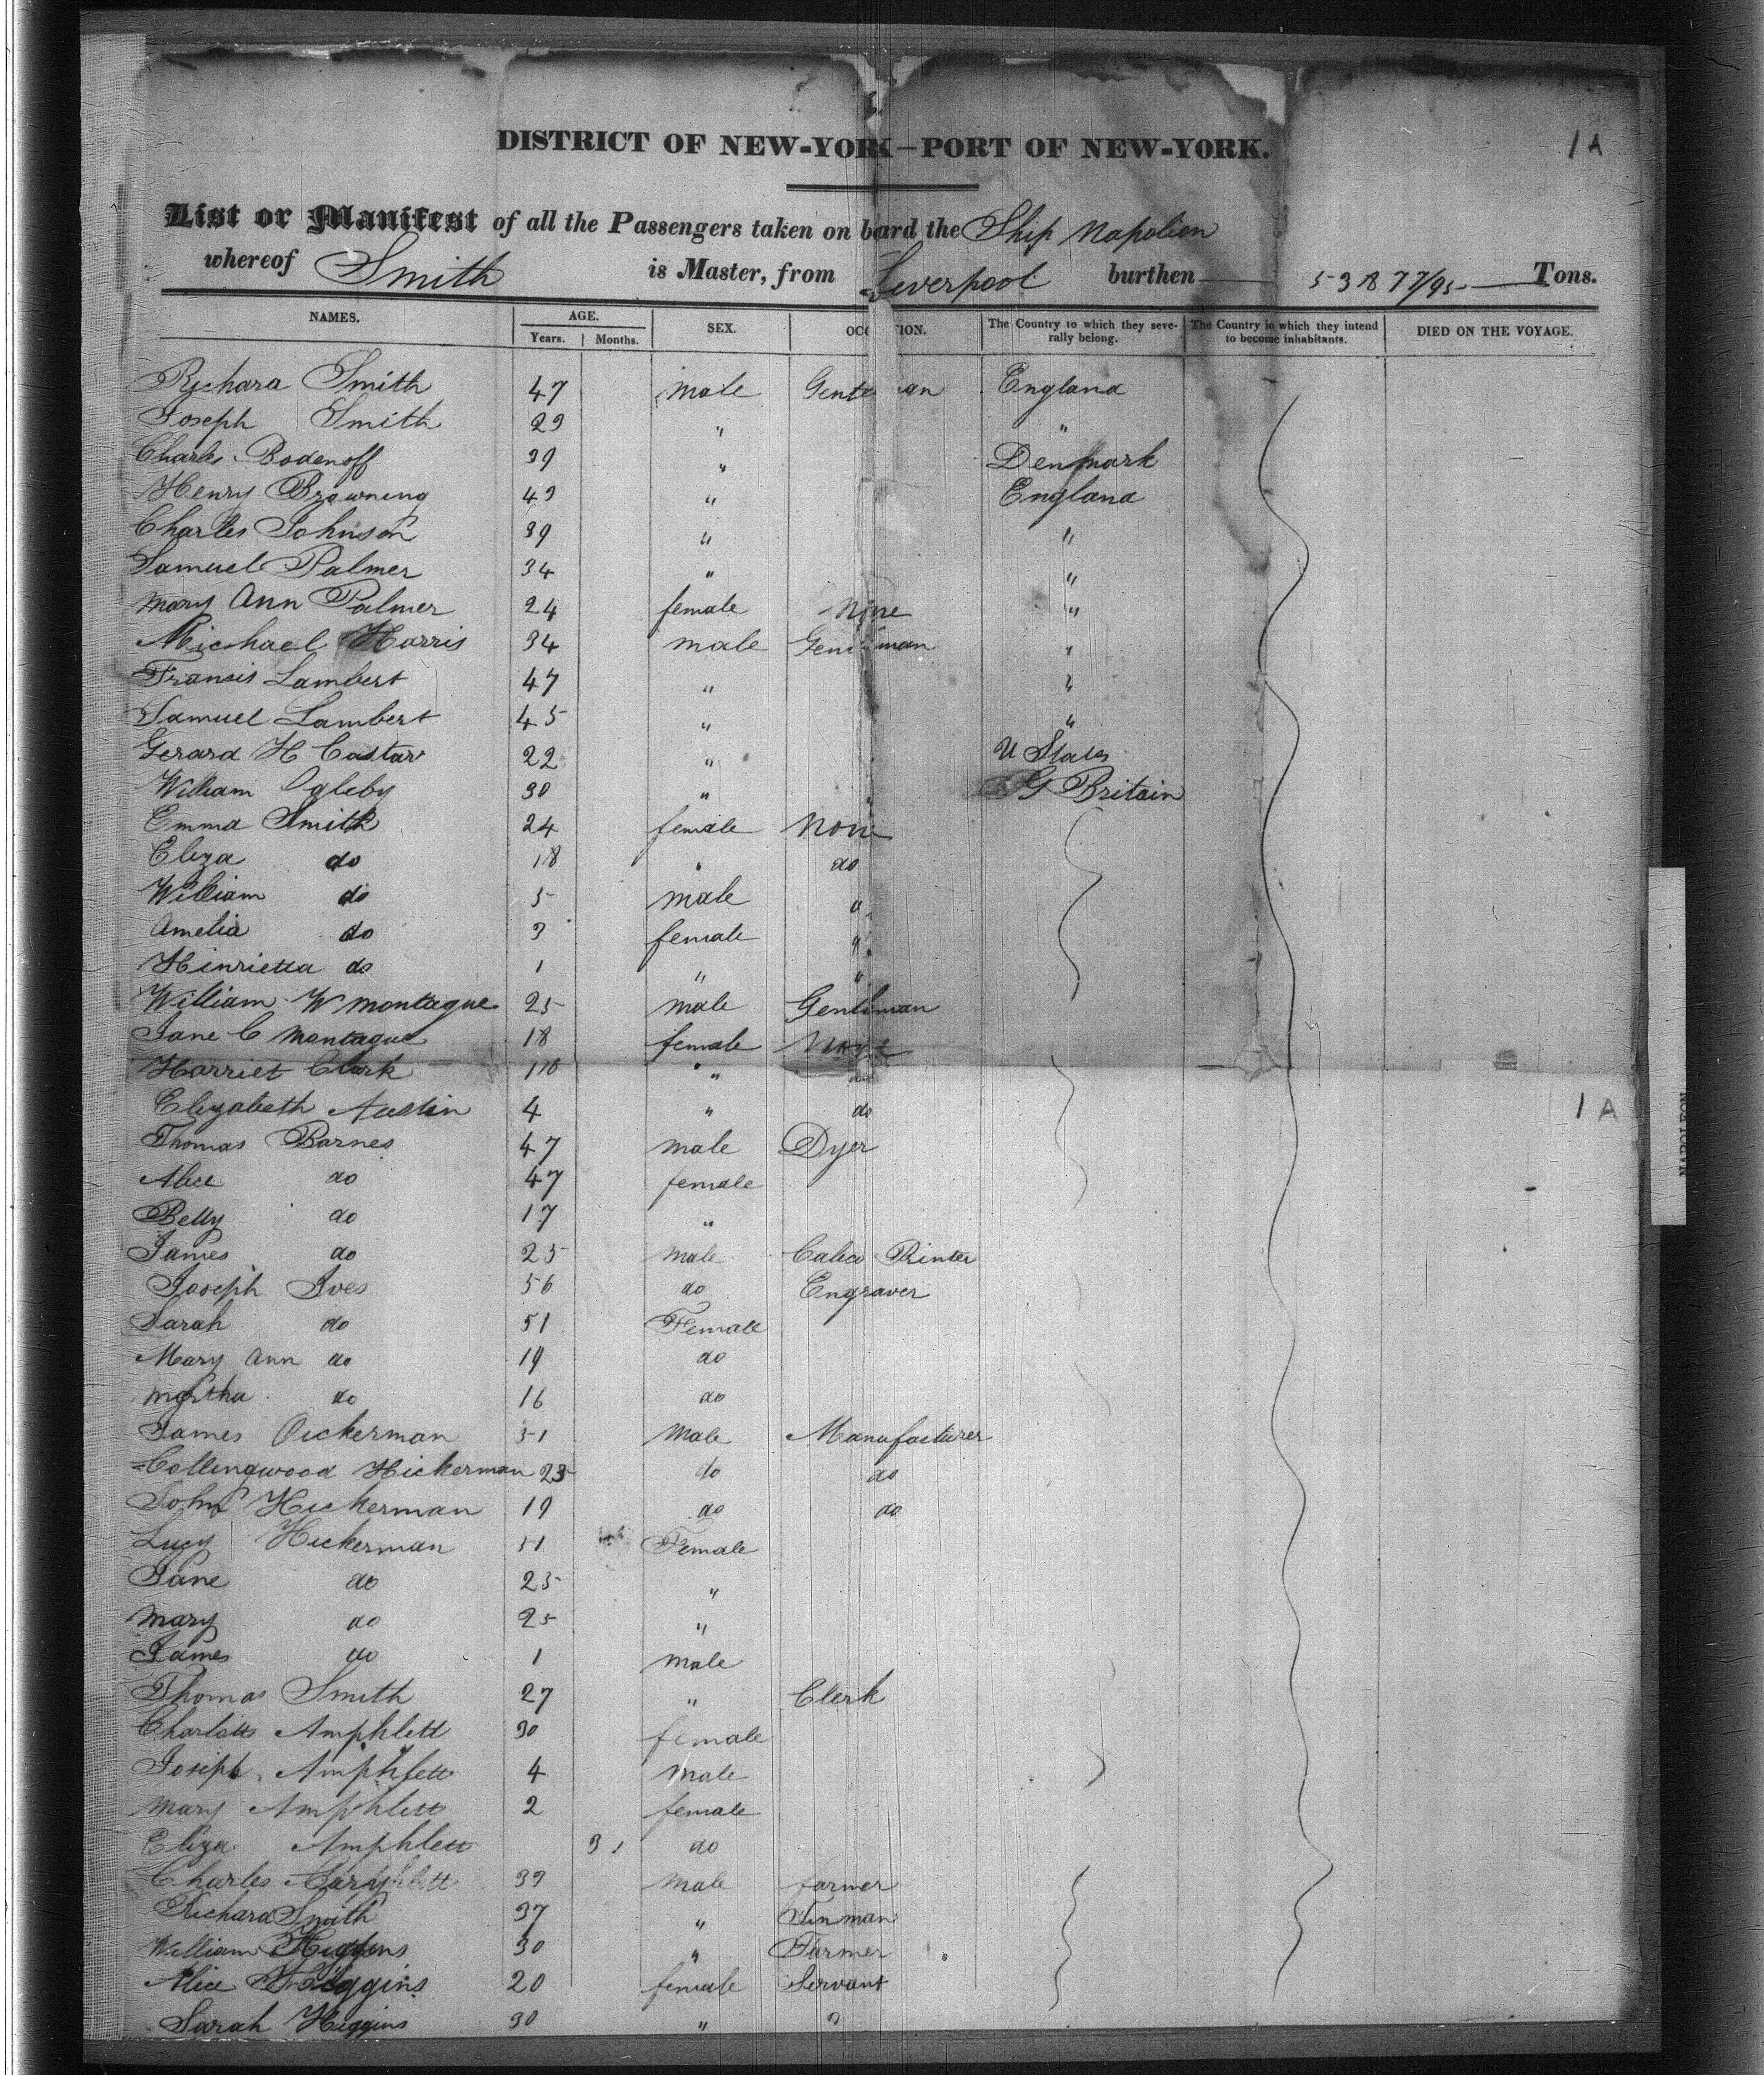 1A
DISTRICT OF NEW-YORK—PORT OF NEW-YORK.
List or Manifest of all the Passengers taken on bard the Ship Napolion
whereof Smith is Master, from Liverpool burthen 538 77/95 Tons.
NAMES. AGE. SEX. OCC TION. The Country to which they seve- The Country in which they intend DIED ON THE VOYAGE.
Years. Months. rally belong. to become inhabitants.
Richard Smith 47 male Gentleman England
Joseph Smith 29 " "
Charles Bodenoff 39 " Denmark
Henry Browning 49 " England
Charles Johnson 39 " "
Samuel Palmer 34 " "
Mary Ann Palmer 24 female None "
Michael Harris 34 male Gentleman "
Fransis Lambert 47 " "
Samuel Lambert 45 " "
Gerard H Castar 22 " U States
William Ogleby 30 " G Britain
Emma Smith 24 female None
Eliza do 18 " do
William do 5 male "
Amelia do 3 female "
Hinrietta do 1 " "
William W Montague 25 male Gentleman
Jane C Montague 18 female None
Harriet Clark " do
Elizabeth Austin 4 " do
Thomas Barnes 47 male Dyer
1A
Alice do 47 female
Betty do 17 "
James do 25 male Calico Printer
Joseph Ives 56 do Engraver
Sarah do 51 Female
Mary Ann do 19 do
Martha do 16 do
James Oickerman 51 Male Manufacturer
Collingwood Hickerman 23 do do
John Hickerman 19 do do
Lucy Hickerman 51 Female
Jane do 25 "
Mary do 25 "
James do 1 male
Thomas Smith 27 " Clerk
Charlotte Amphlett 30 female
Joseph Amphlett 4 male
Mary Amphlett 2 female
Eliza Amphlett 3 do
Charles 39 male farmer
Richard Smith 37 " Tinman
William Higgins 30 " Farmer
Alice Higgins 20 female Servant
Sarah Higgins 30 " "
NAPOLEON